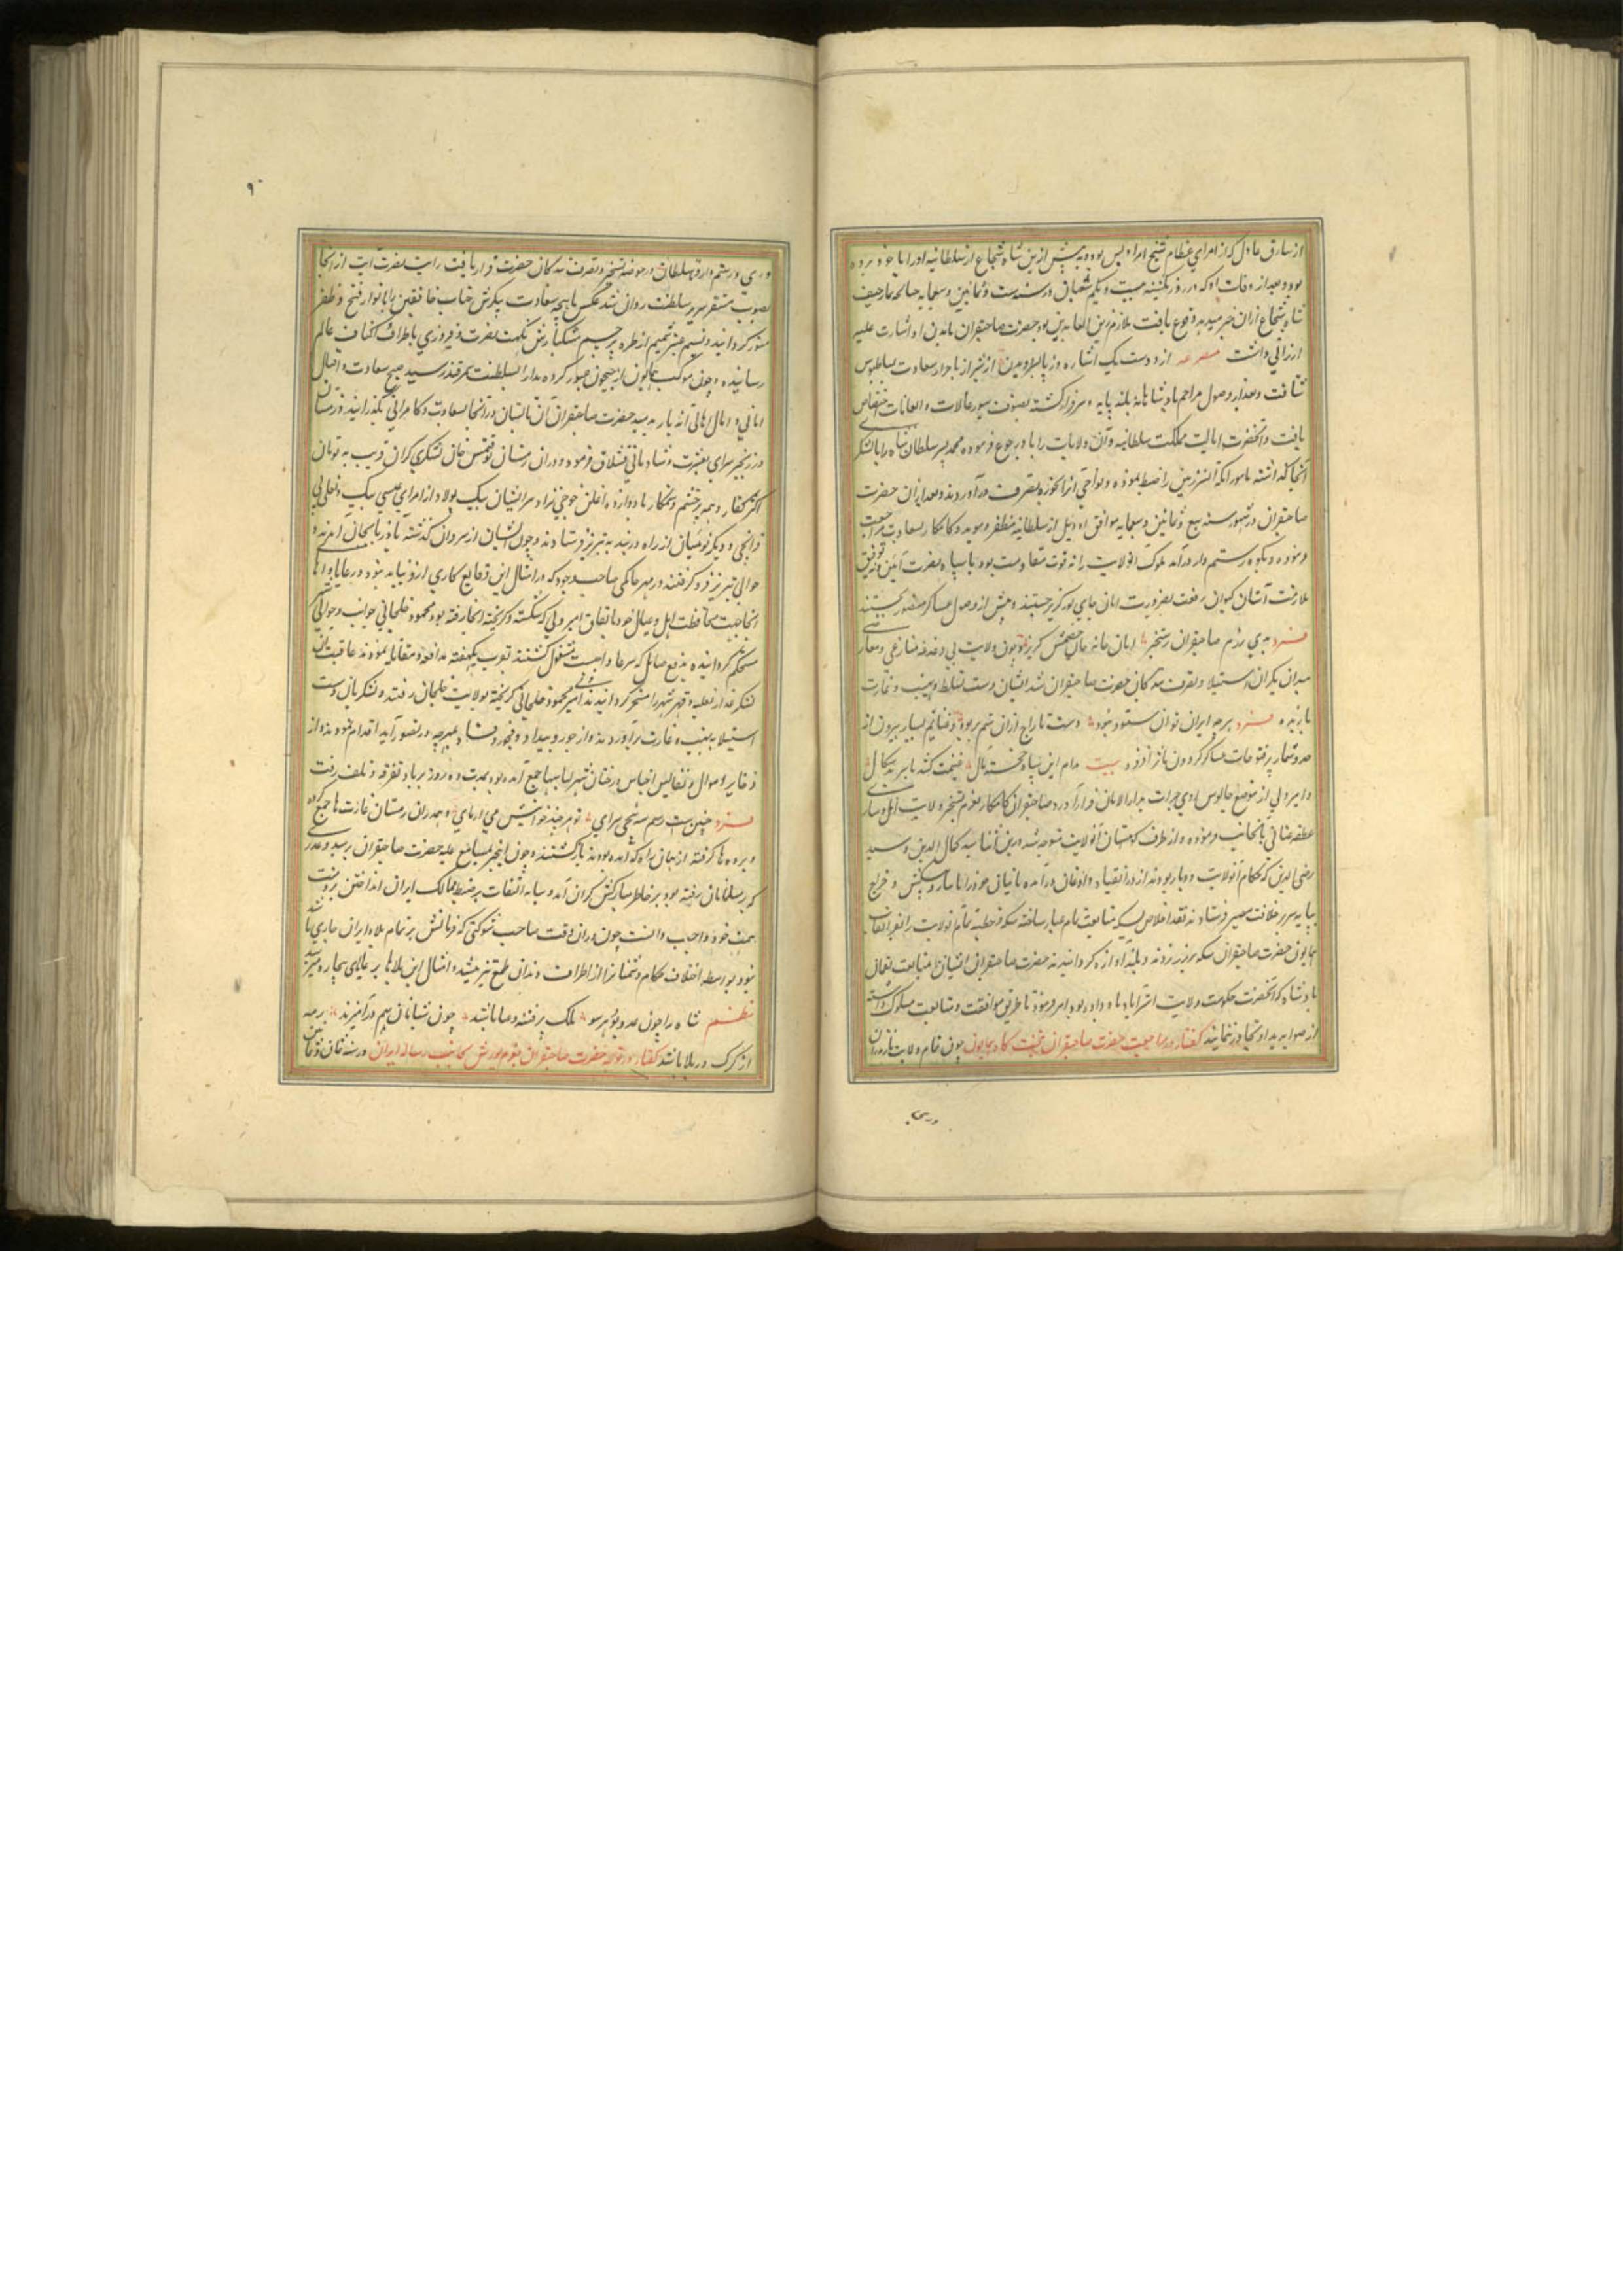 از سارق عادل که از امرای عظام شیخ امرا ویس بود و پیش ازین شاه شجاع از سلطانیه او را با خود برده
بود و بعد از وفات او که در روز یکشنبه بیست و یکم شعبان در سنه ست و ثمانین و سبعمایه
شاه شجاع ازان خبر میدهد وقوع یافت ملازم زین العابدین بود حضرت صاحبقران باندن او اشارت علیه
ارزانی داشت مصرعه از دوست یک اشاره وز ما بسر دویدن از شیراز با جراد سعادت بساطبوس
شتافت و بعد از وصول مراحم پادشاهانه بلند پایه و سرفراز گشته بصنوف سیورغالات و انعامات اختصاص
یافت و آنحضرت ایالت مملکت سلطانیه و آن ولایات را باو رجوع فرموده محمد پسر سلطان شاه را با لشکر
آنجا گذاشته مامور آنکه آن سرزمین را ضبط نموده و نواحی آنرا بحوزه تصرف درآوردند و بعد ازان حضرت
صاحبقران در شهور سنه سبع و ثمانین و سبعمایه موافق اود ئیل از سلطانیه مظفر و موید و کامکار بسعادت مراجعت
فرموده و بکوه رستم دار درآمد ملوک آن ولایت را نه قوت مقاومت بود با سپاه نصرت آیین و نه توفیق
ملازمت آستان کیوان رفعت بضرورت امان جای بر گریز جستند و پیش از وصول عساکر منصور بجستند
فرد پی رزم صاحبقران رستخیز امان خانه جان خصمش گریز و چون ولایت بی دغدغه منازعی و معارضی
میدان یکران استیلا و تصرف بندگان حضرت صاحبقران شد ایشان دست تسلط و نهب و غارت
یازیده فرد هر چه ایران توان ستود نبود دست تاراج ازان ستم بربود و غنایم بسیار بیرون از
حد و شمار بر فتوحات عساکر گردون ماثر افزود بیت مدام این سپاه خجسته مآل غنیمت کند یا سر بدسگال
و امیر ولی از موضع چالوس روی جرات بدار الامان فرار آورد و صاحبقران کامکار بعزم تسخیر ولایت آمل و ساری
عطف عنان بانجانب فرموده و از طرف کوهستان آنولایت متوجه شد درین اثنا سید کمال الدین و سید
رضی الدین که حکام آنولایت و دیار بودند از در انقیاد و اذعان درآمده نایبان خود را با ساو و پیشکش و خراج
بپایه سریر خلافت مصیر فرستادند نقد اخلاص بسکه متابعت تمام عیار ساخته سکه و خطبه تمام آنولایت را بفر القاب
همایون حضرت صاحبقران سکه بر زر زدند و بلند آوازه گردانیدند حضرت صاحبقران ایشانرا بمتابعت لقمان
پادشاه که آنحضرت حکومت ولایت استراباد باو داده بود امر فرمود تا طریق موافقت و متابعت مسلوک داشته
از صوابدید او تجاوز ننمایند گفتار در مراجعت حضرت صاحبقران بتخت گاه همایون چون تمام ولایت مازندران
و ری
۹۰
و ری و رستمدار و سلطانیه در حوضه تسخیر و تصرف بندگان حضرت قرار یافت رایت نصرت آیت از آنجا
بصوب مستقر سریر سلطنت روان شد عکس ماهچه سعادت پیکرش جناب خافقین را بانوار فتح و ظفر
منور گردانید و نسیم عنبر شمیم از طره پرچم مشکبارش نکهت نصرت و فیروزی باطراف و اکناف عالم
رسانیده و چون موکب همایون از جیحون عبور کرده بدار السلطنت سمرقند رسید صبح سعادت و اقبال
امانی و امال اهالی آنه یار بدمید حضرت صاحبقران آن تابستان در آنجا بسعادت و کامرانی بگذرانید و زمستان
در زنجیر سرای بعشرت و شادمانی قشلاق فرمود و دران زمستان توقتمش خان لشکری گران قریب به نه تومان
اکثر کفار و همه پر خشم و ستمکار با دوازده اغلن جوجی نژاد سر ایشان بیک پولاد از امرای عیسی بیک و یغلی بی
و قزانچی و دیگر نومیان از راه دربند به تبریز فرستاد و چون ایشان از سروان گذشته باذربایجان آمدند و
حوالی تبریز فرو گرفتند در شهر حاکمی صاحب وجود که در امثال این وقایع کاری ازو بیاید نبود و رعایا و اهالی
آنجا جهت محافظت اهل و عیال خود باتفاق امیر ولی که شکسته و گریخته آنجا رفته بود و محمود خلخالی جوانب و حوالی شهر
مستحکم گردانیده بدفع صایل که شرعا واجبست مشغول گشتند قریب یکهفته مدافعه و مقابله نمودند عاقبت آن
لشکر غدار بغلبه و قهر شهر را مسخر گردانیدند امیر ولی و محمود خلخالی گریخته بولایت خلخال رفتند و لشکریان دست
استیلا به نهب و غارت برآوردند و از جور و بیداد و فجور و فساد هر چه در تصور آید اقدام نمودند و از
ذخایر و اموال و نفایس اجناس در چنان شهر سالها جمع آمده بود بمدت ده روز بر باد تفرقه و تلف رفت
فرد چنین ست رسم سپنجی سرای تو هر چند خوانیش می ارمای و همدران زمستان غارت ها جمع کرده
و برده ها گرفته از همان راه که آمده بودند بازگشتند و چون این خبر بمسامع علیه حضرت صاحبقران رسید و غدری
که بر مسلمانان رفته بود بر خاطر مبارکش گران آمد و سایه التفات بر ضبط ممالک ایران انداختن بر ذمت
همت خود واجب دانست چون دران وقت صاحب شوکتی که فرمانش بر تمام بلاد ایران جاری باشد
نبود و بواسطه اختلاف حکام دشمنانرا از اطراف دندان طمع تیز میشد و امثال این بلاها بر عالمیان بیچاره میرسد
نظم شاه را چون عدو بود هر سو ملک پر فتنه و صدا باشد چون شبانان بهم درآمیزند رمه
از گرگ در بلا باشد گفتار در توجه حضرت صاحبقران بعزم یورش بجانب رساله ایران در سنه ثمان و ثمانین